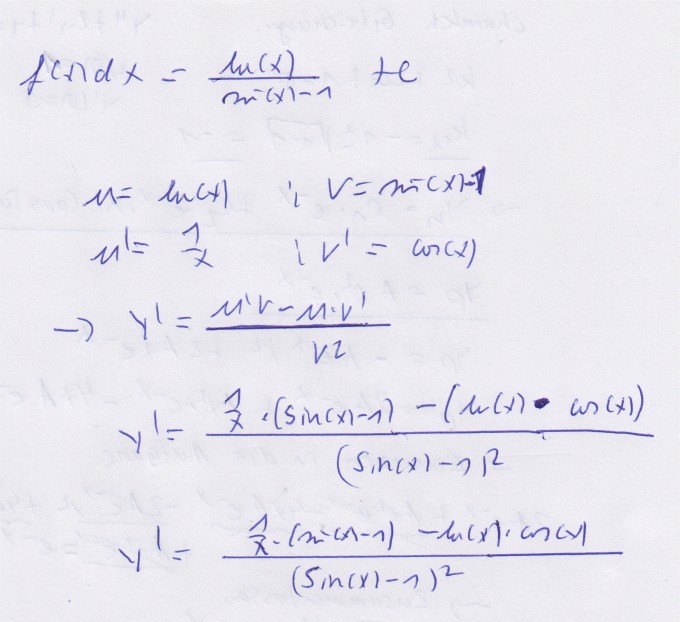 f(x)dx = ln(x)/(sin(x)-1) +c
u = ln(x) ; v = sin(x)-1
u' = 1/x ; v' = cos(x)
→ y' = (u'v - u·v')/v²
y' = (1/x·(sin(x)-1) - (ln(x)·cos(x)))/(sin(x)-1)²
y' = (1/x·(sin(x)-1) - ln(x)·cos(x))/(sin(x)-1)²